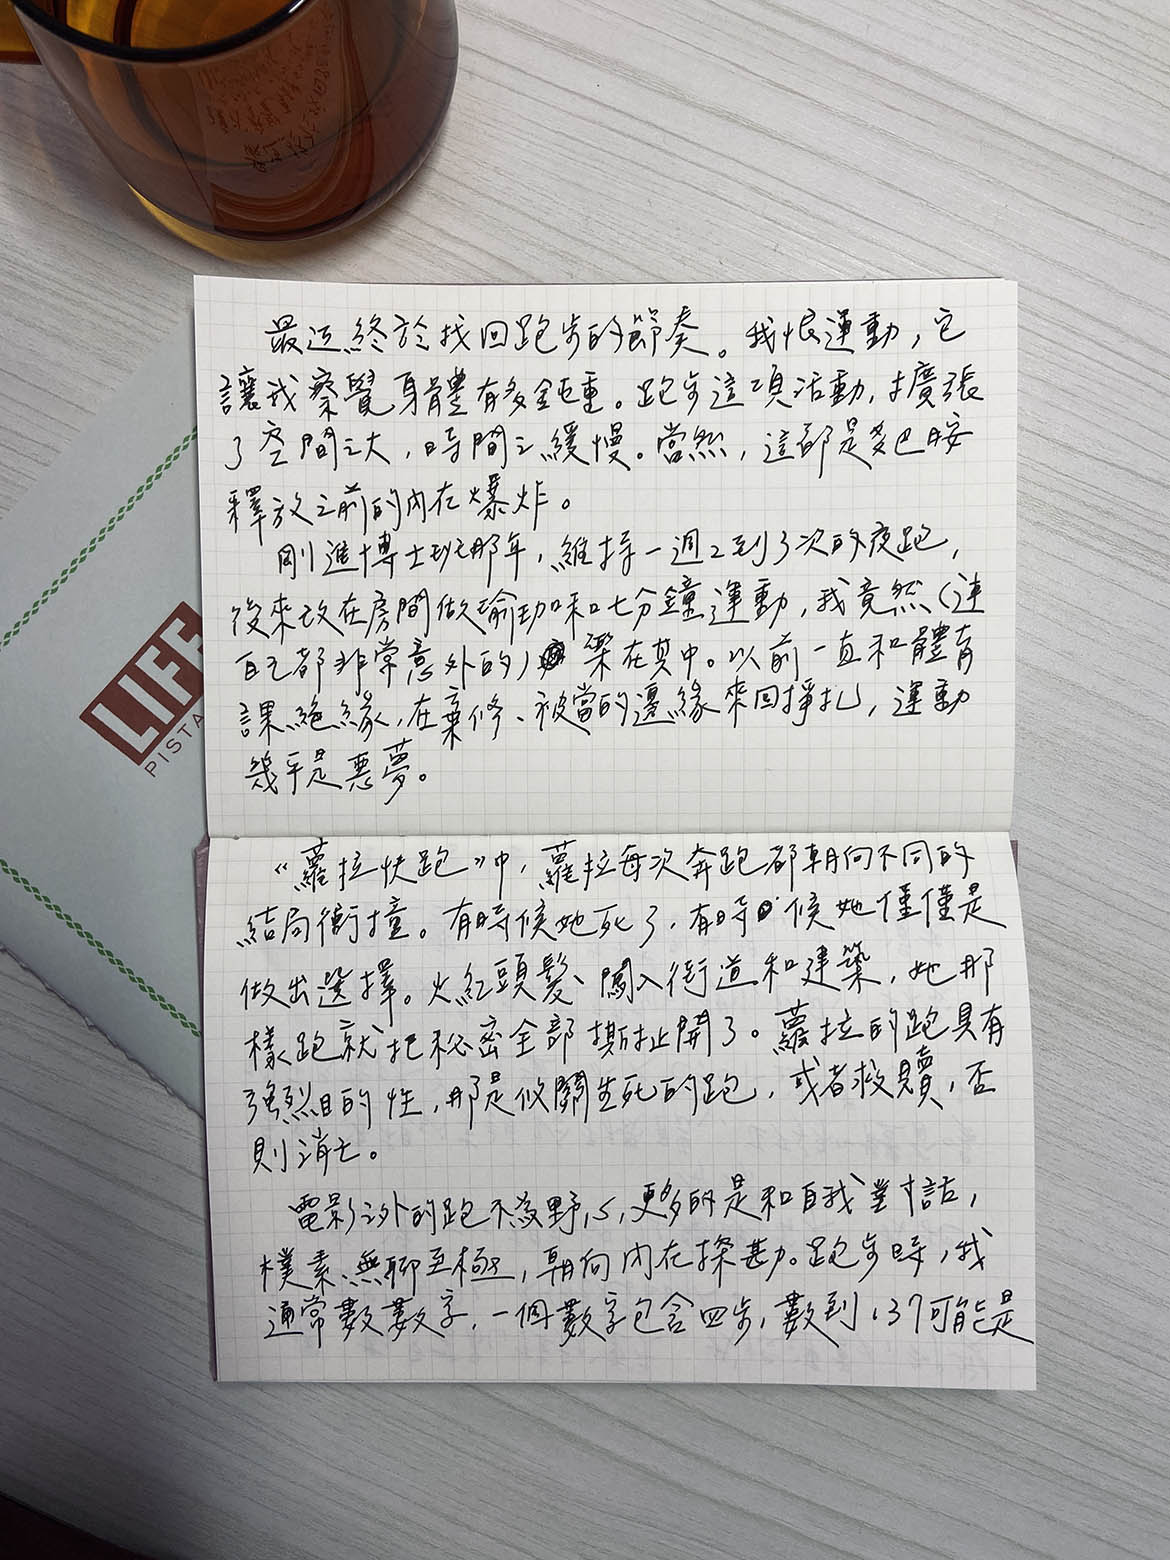 最近終於找回跑步的節奏。我恨運動，它
讓我察覺身體有多鈍重。跑步這項活動，擴張
了空間之大，時間之緩慢。當然，這都是多巴胺
釋放之前的內在爆炸。
剛進博士班那年，維持一週2到3次的夜跑，
後來改在房間做瑜珈和七分鐘運動，我竟然（連
自己都非常意外的）樂在其中。以前一直和體育
課絕緣，在棄修、被當的邊緣來回掙扎，運動
幾乎是惡夢。
《蘿拉快跑》中，蘿拉每次奔跑都朝向不同的
結局衝撞。有時候她死了，有時候她僅僅是
做出選擇。火紅頭髮、闖入街道和建築，她那
樣跑就把秘密全部撕扯開了。蘿拉的跑具有
強烈目的性，那是攸關生死的跑，或者救贖，否
則消亡。
電影之外的跑不為野心，更多的是和自我對話，
樸素、無聊至極，朝向內在探勘。跑步時，我
通常數數字，一個數字包含四步，數到137可能是
LIFE
PISTA